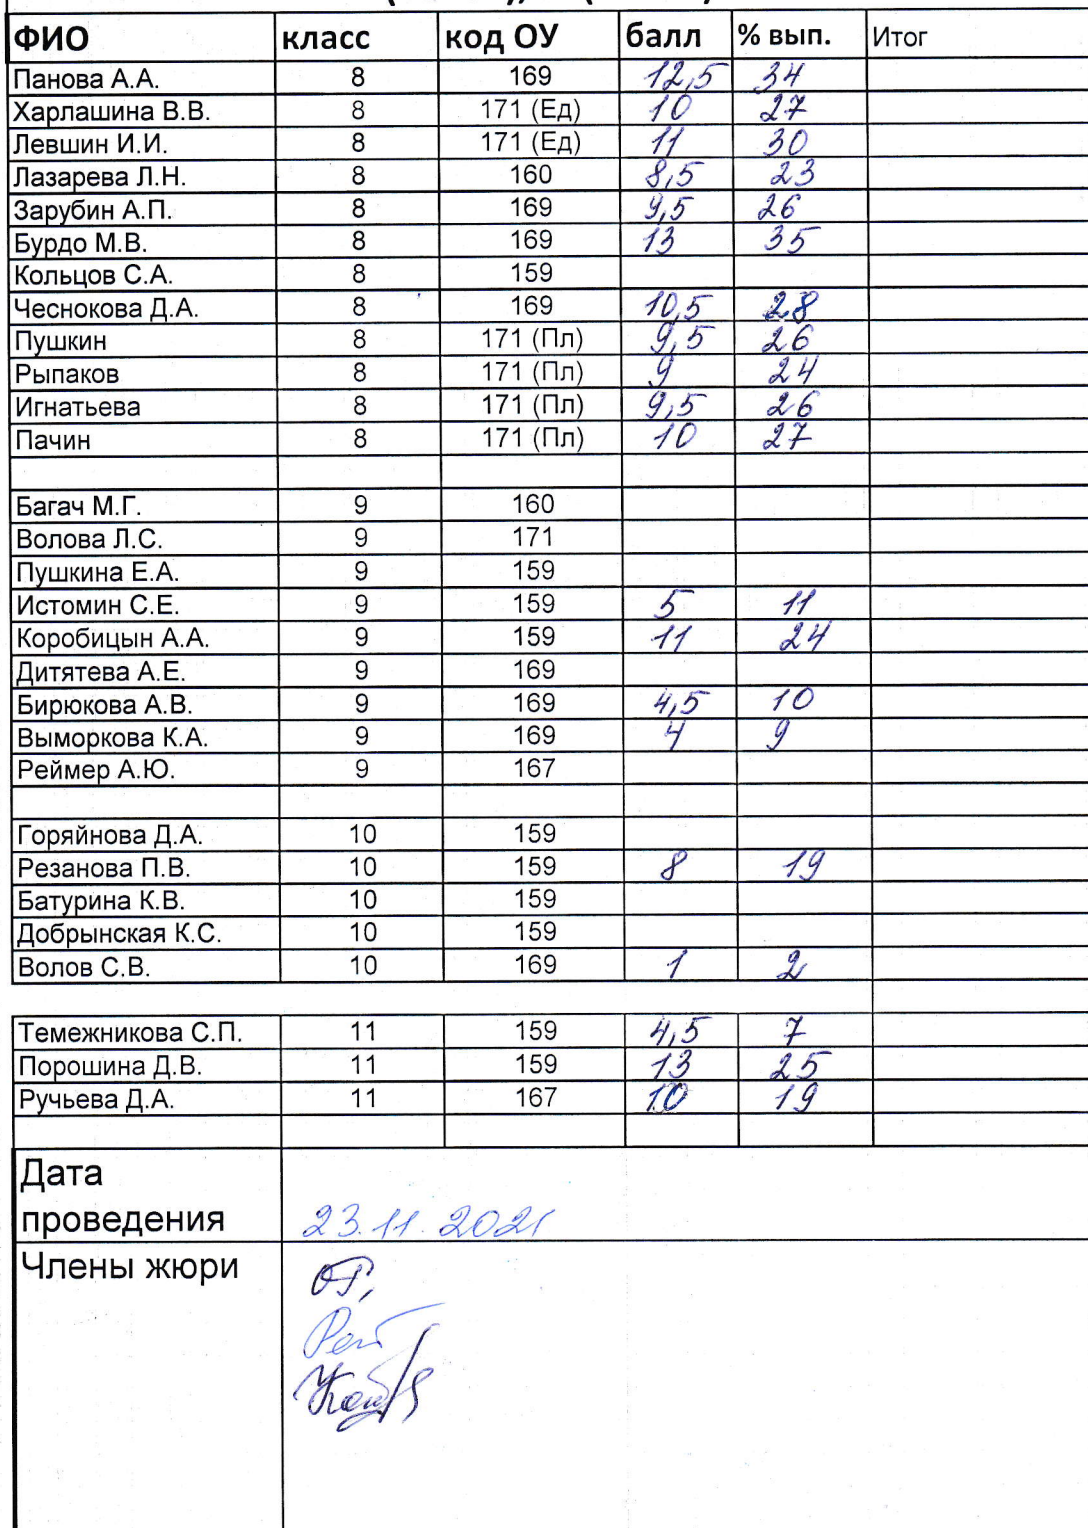 ФИО класс код ОУ балл % вып. Итог
Панова А.А. 8 169 12,5 34
Харлашина В.В. 8 171 (Ед) 10 27
Левшин И.И. 8 171 (Ед) 11 30
Лазарева Л.Н. 8 160 8,5 23
Зарубин А.П. 8 169 9,5 26
Бурдо М.В. 8 169 13 35
Кольцов С.А. 8 159
Чеснокова Д.А. 8 169 10,5 28
Пушкин 8 171 (Пл) 9,5 26
Рыпаков 8 171 (Пл) 9 24
Игнатьева 8 171 (Пл) 9,5 26
Пачин 8 171 (Пл) 10 27
Багач М.Г. 9 160
Волова Л.С. 9 171
Пушкина Е.А. 9 159
Истомин С.Е. 9 159 5 11
Коробицын А.А. 9 159 11 24
Дитятева А.Е. 9 169
Бирюкова А.В. 9 169 4,5 10
Выморкова К.А. 9 169 4 9
Реймер А.Ю. 9 167
Горяйнова Д.А. 10 159
Резанова П.В. 10 159 8 19
Батурина К.В. 10 159
Добрынская К.С. 10 159
Волов С.В. 10 169 1 2
Темежникова С.П. 11 159 4,5 7
Порошина Д.В. 11 159 13 25
Ручьева Д.А. 11 167 10 19
Дата
проведения 23.11.2021
Члены жюри